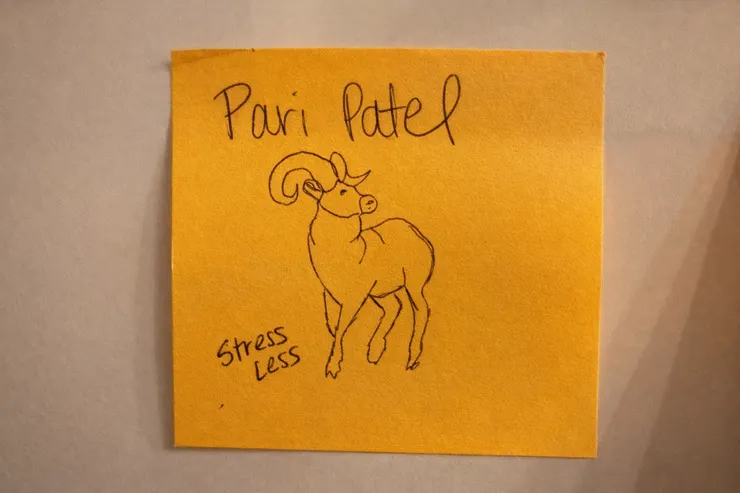 Pari Patel
Stress
Less